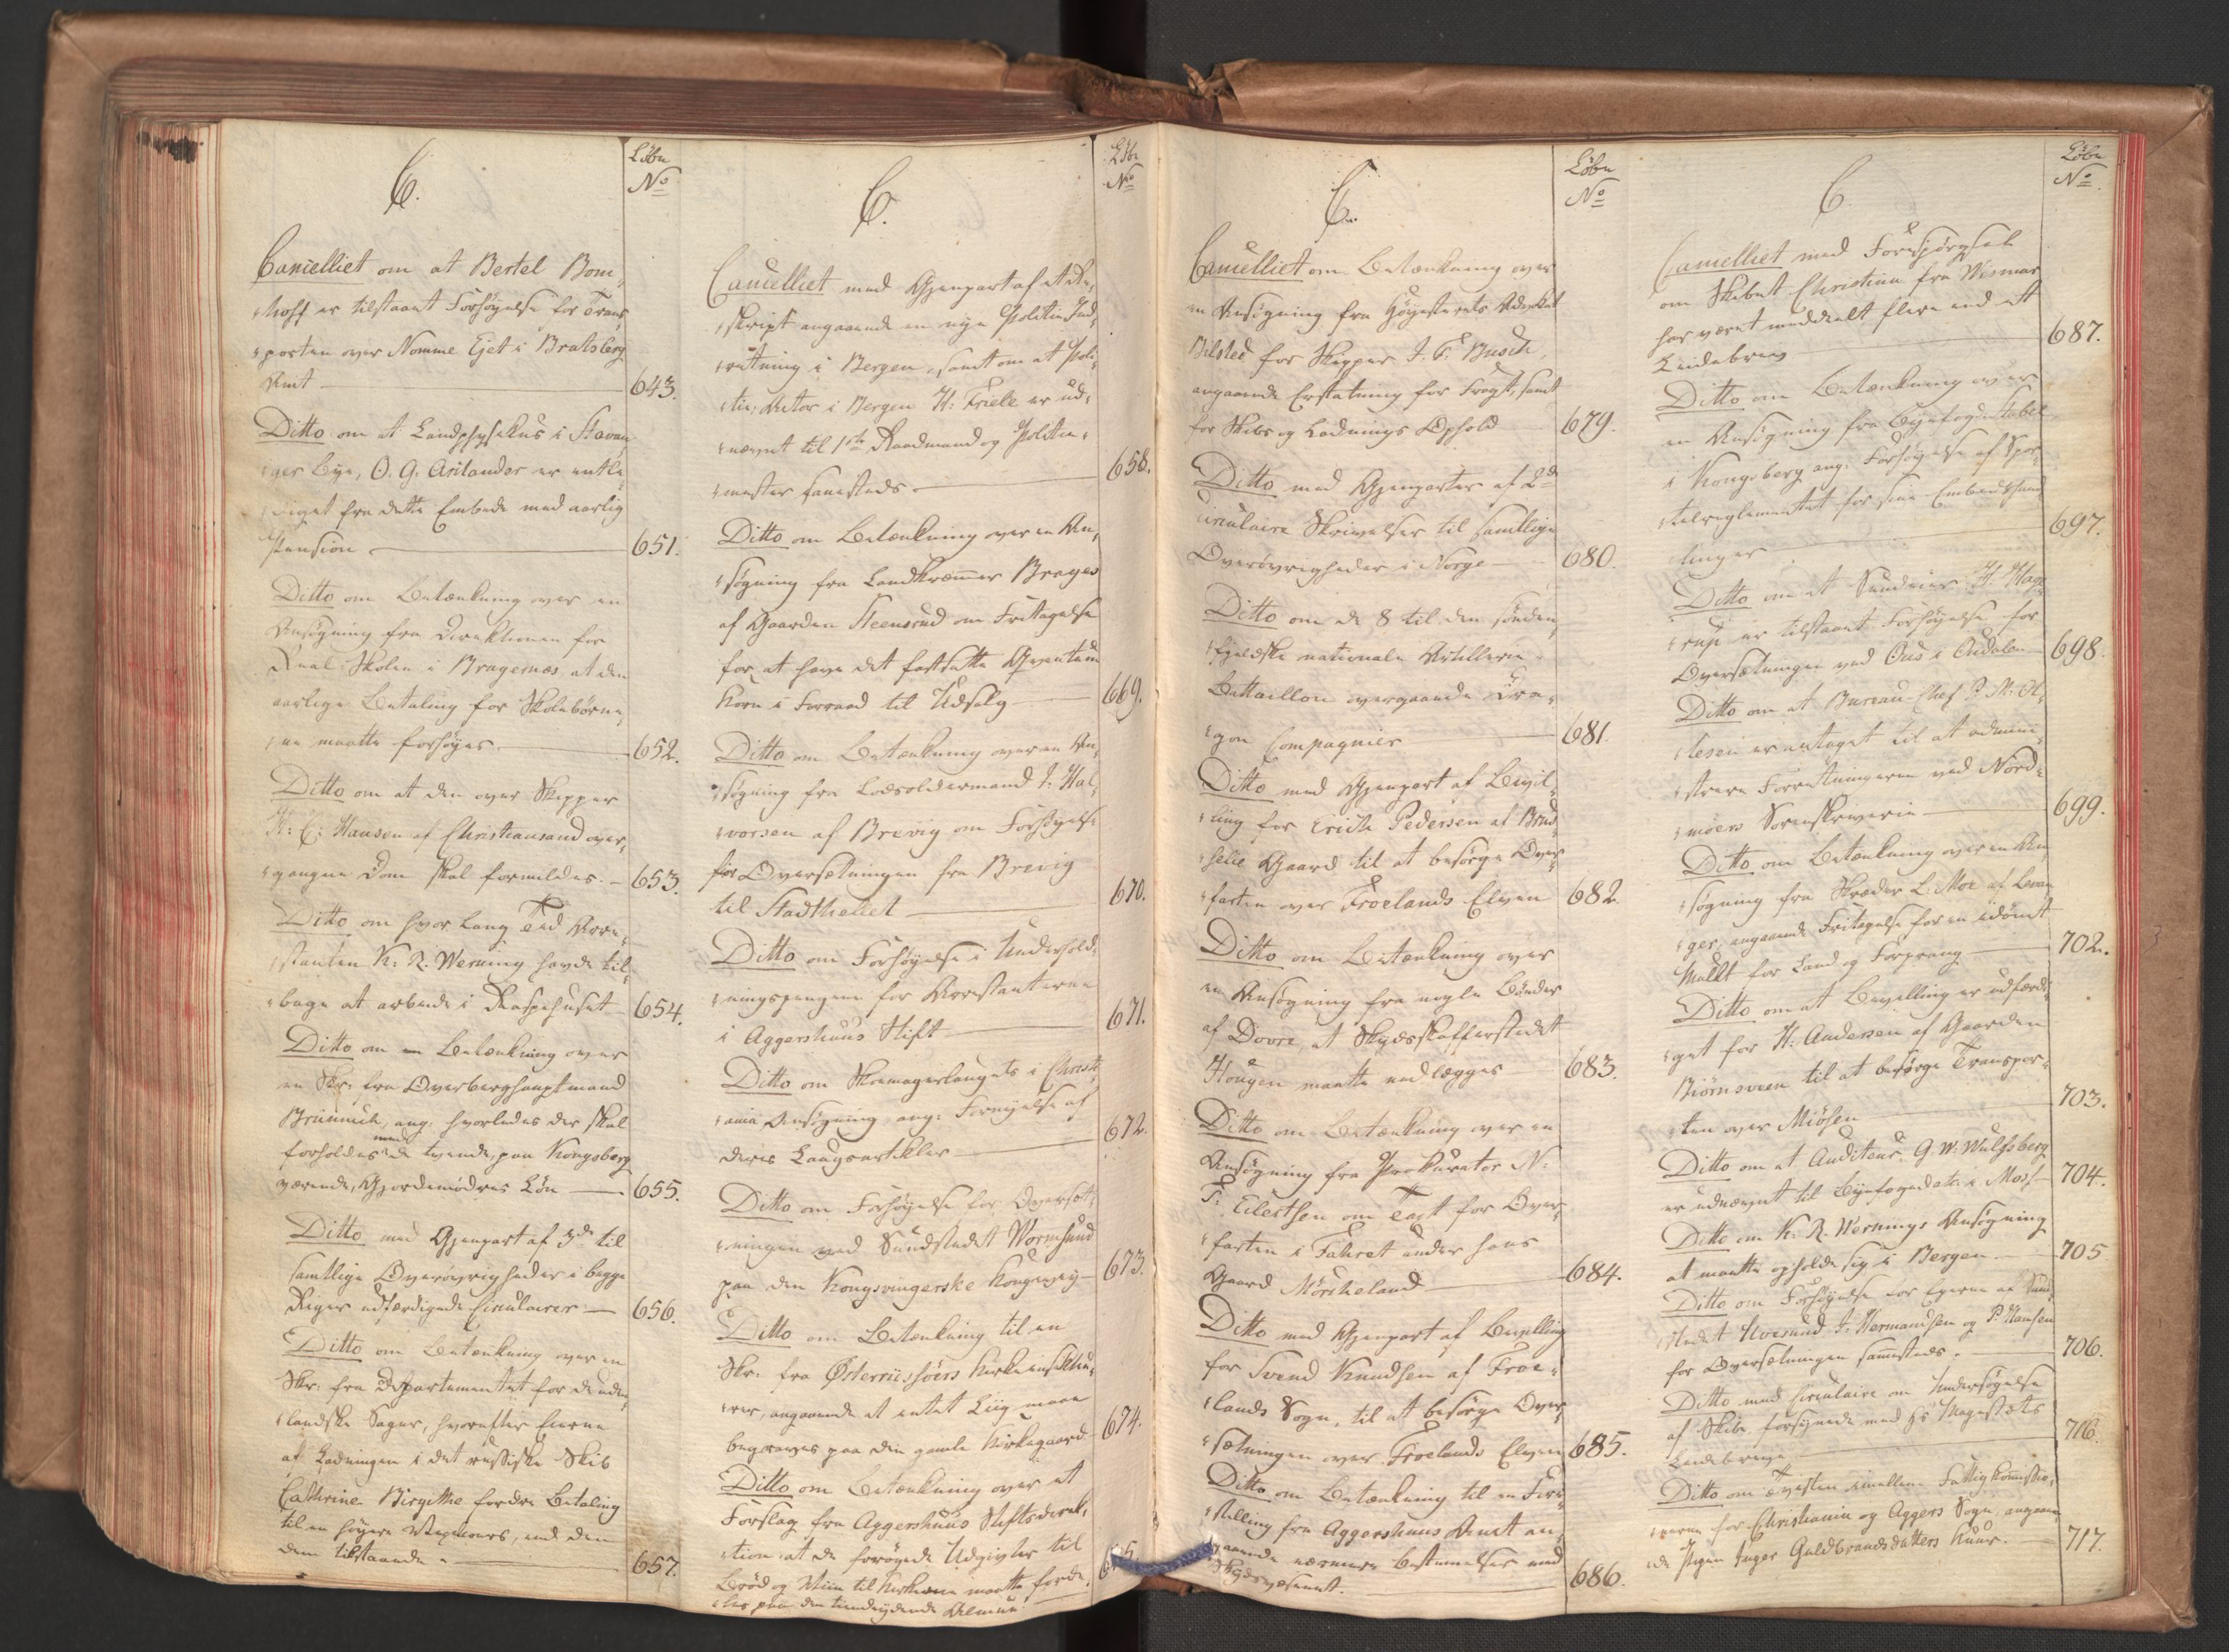 C.
Löbe
No
Cancelliet om at Bertel Bom,
hoff er tilstaaet Forhöyelse for Trans,
porten over Nomme Ejet i Bratsberg
Amt 643.
Ditto om at Landphysikus i Stavan,
ger Bye, O. G. Arilander er entle,
diget fra dette Embede med aarlig
Pension 651.
Ditto om Betænkning over en
Ansögning fra Directionen for
Real Skolen i Bragernæs at den
aarlige Betaling for Skolebörne,
ne maatte forhöyes. 652.
Ditto om at den over Skipper
H: C: Hansen af Christiansand over,
gangne Dom skal formildes. 653.
Ditto om hvor lang Tid Arre,
stanten K: R. Werning havde til,
bage at arbeide i Raspehuset 654.
Ditto om Betænkning over
en Skr: fra Overberghauptmand
Brünnich, ang: hvorledes der skal
forholdes med de tvende, paa Kongsberg
værende, Gjordemödres Lön 655.
Ditto med Gjenpart af 3de til
samtlige Overövrigheder i begge
Riger udfærdigede Circulairer 656.
Ditto om Betænkning over en
Skr: fra Departementet for de uden,
landske Sager, hvorefter Eierne
af Ladningen i det russiske Skib
Cathrine Birgithe fordre Betaling
til en höyere Vexelcours, end den
dem tilstaaede 657.
C.
Löbe
No
Cancelliet med Gjenpart af et Re,
skript angaaende en nye Politie Ind,
retning i Bergen, samt om at Poli,
tie, Actor i Bergen H: Friele er ud,
nævnt til 1ste Raadmand og Politie,
mester sammesteds 658.
Ditto om Betænkning over en An,
sögning fra Landkræmmer Brages
af Gaarden Steensrud om Frittagelse
for at have det fastsatte Qvantum
Korn i Forraad til Udsalg 669.
Ditto om Betænkning over en An,
sögning fra Lodsoldermand J. Hal,
vorsen af Brevig om Forhöyelse
for Oversætningen fra Brevig
til Stadthellet 670.
Ditto om Forhöyelse i Underhold,
ningspengene for Arrestanterne
i Aggershuus Stift 671.
Ditto om Skomagerlaugets i Christi,
ania Ansögning ang: Fornyelse af
deres Laugsartikler 672.
Ditto om Forhöyelse for Oversæt,
ningen ved Sundstedet Wormsund
paa den Kongsvingerske Kongevey 673.
Ditto om Betænkning til en
Skr: fra Österriisöers Kirkeinspekteu,
rer, angaaende at intet Liig maae
begraves paa den gamle Kirkegaard 674.
Ditto om Betænkning over et
Forslag fra Aggershuus Stiftsdirek,
tion at de forögede Udgivter til
Bröd og Viin til Kirkerne maatte forde,
les paa den tiendeydende Almue
C.
Löbe
No
Cancelliet om Betænkning over
en Ansögning fra Höyesterets Advokat
Bilsted for Skipper J. C. Busch,
angaaende Erstatning for Fragt, samt
for Skibs og Ladnings Ophold 679.
Ditto med Gjenparter af 2de
circulaire Skrivelser til samtlige
Overövrigheder i Norge 680.
Ditto om de 8 til den sönden,
fjeldske nationale Artillerie
Battaillon overgaaende Dra,
gon Compagnier 681.
Ditto med Gjenpart af Bevil,
ling for Erich Pedersen af Brud,
selie Gaard til at besörge Over,
farten over Froelands Elven 682.
Ditto om Betænkning over
en Ansögning fra nogle Bönder
af Dovre, at Skydsskafferstedet
Hougen maatte nedlægges 683.
Ditto om Betænkning over en
Ansögning fra Prokurator N:
T: Eilertsen om Taxt for Over,
farten i Fahret under hans
Gaard Mörcheland 684.
Ditto med Gjenpart af Bevilling
for Svend Knudsen af Froe,
lands Sogn, til at besörge Over,
sætningen over Froelands Elven 685.
Ditto om Betænkning til en Fore,
stilling fra Aggershuus Amt an,
gaaende nærmere Bestemmelser ved
Skydsvæsenet. 686.
C.
Löbe
No
Cancelliet med Forespörgsel
om Skibet Christine fra Wismar
har været meddeelt flere end et
Leidebrev 687.
Ditto om Betænkning over
en Ansögning fra Byefoged Stabel
i Kongsberg ang: Forhöyelse af Spor,
telreglementet for sine Embedshand,
linger 697.
Ditto om at Sundmand H. Hage,
rup er tilstaaet Forhöyelse for
Oversætningen ved Ous i Oudalen 698.
Ditto om at Bureau-Chef P. M. Ot,
tesen er antaget til at admini,
strere Forretningerne ved Nord,
möers Sorenskriverie 699.
Ditto om Betænkning over en An,
sögning fra Skræder L: Moe af Levan,
ger, angaaende Fritagelse for en idömt
Mulkt for Land og Forprang 702.
Ditto om at Bevilling er udfærdi,
get for H: Andersen af Gaarden
Biörnsveen til at besörge Transpor,
ten over Miösen 703.
Ditto om at Auditeur G. W. Wulfsberg
er udnævnt til Byefoged etc: i Moss 704.
Ditto om K: R. Wernings Ansögning
at maatte opholde sig i Bergen 705
Ditto om Forhöyelse for Eierne af Sund,
stedet J: Hermandsen og P. Hansen
for Oversætningen sammesteds. 706.
Ditto med Circulaire om Undersögelse
af Skibe forsynede med Hs Majestæts
Leidebreve 716.
Ditto om Tvisten imellem Fattigkommissio,
nerne for Christiania og Aggers Sogn, angaaen
de Pigen Inger Guldbrandsdatters Kuur. 717.